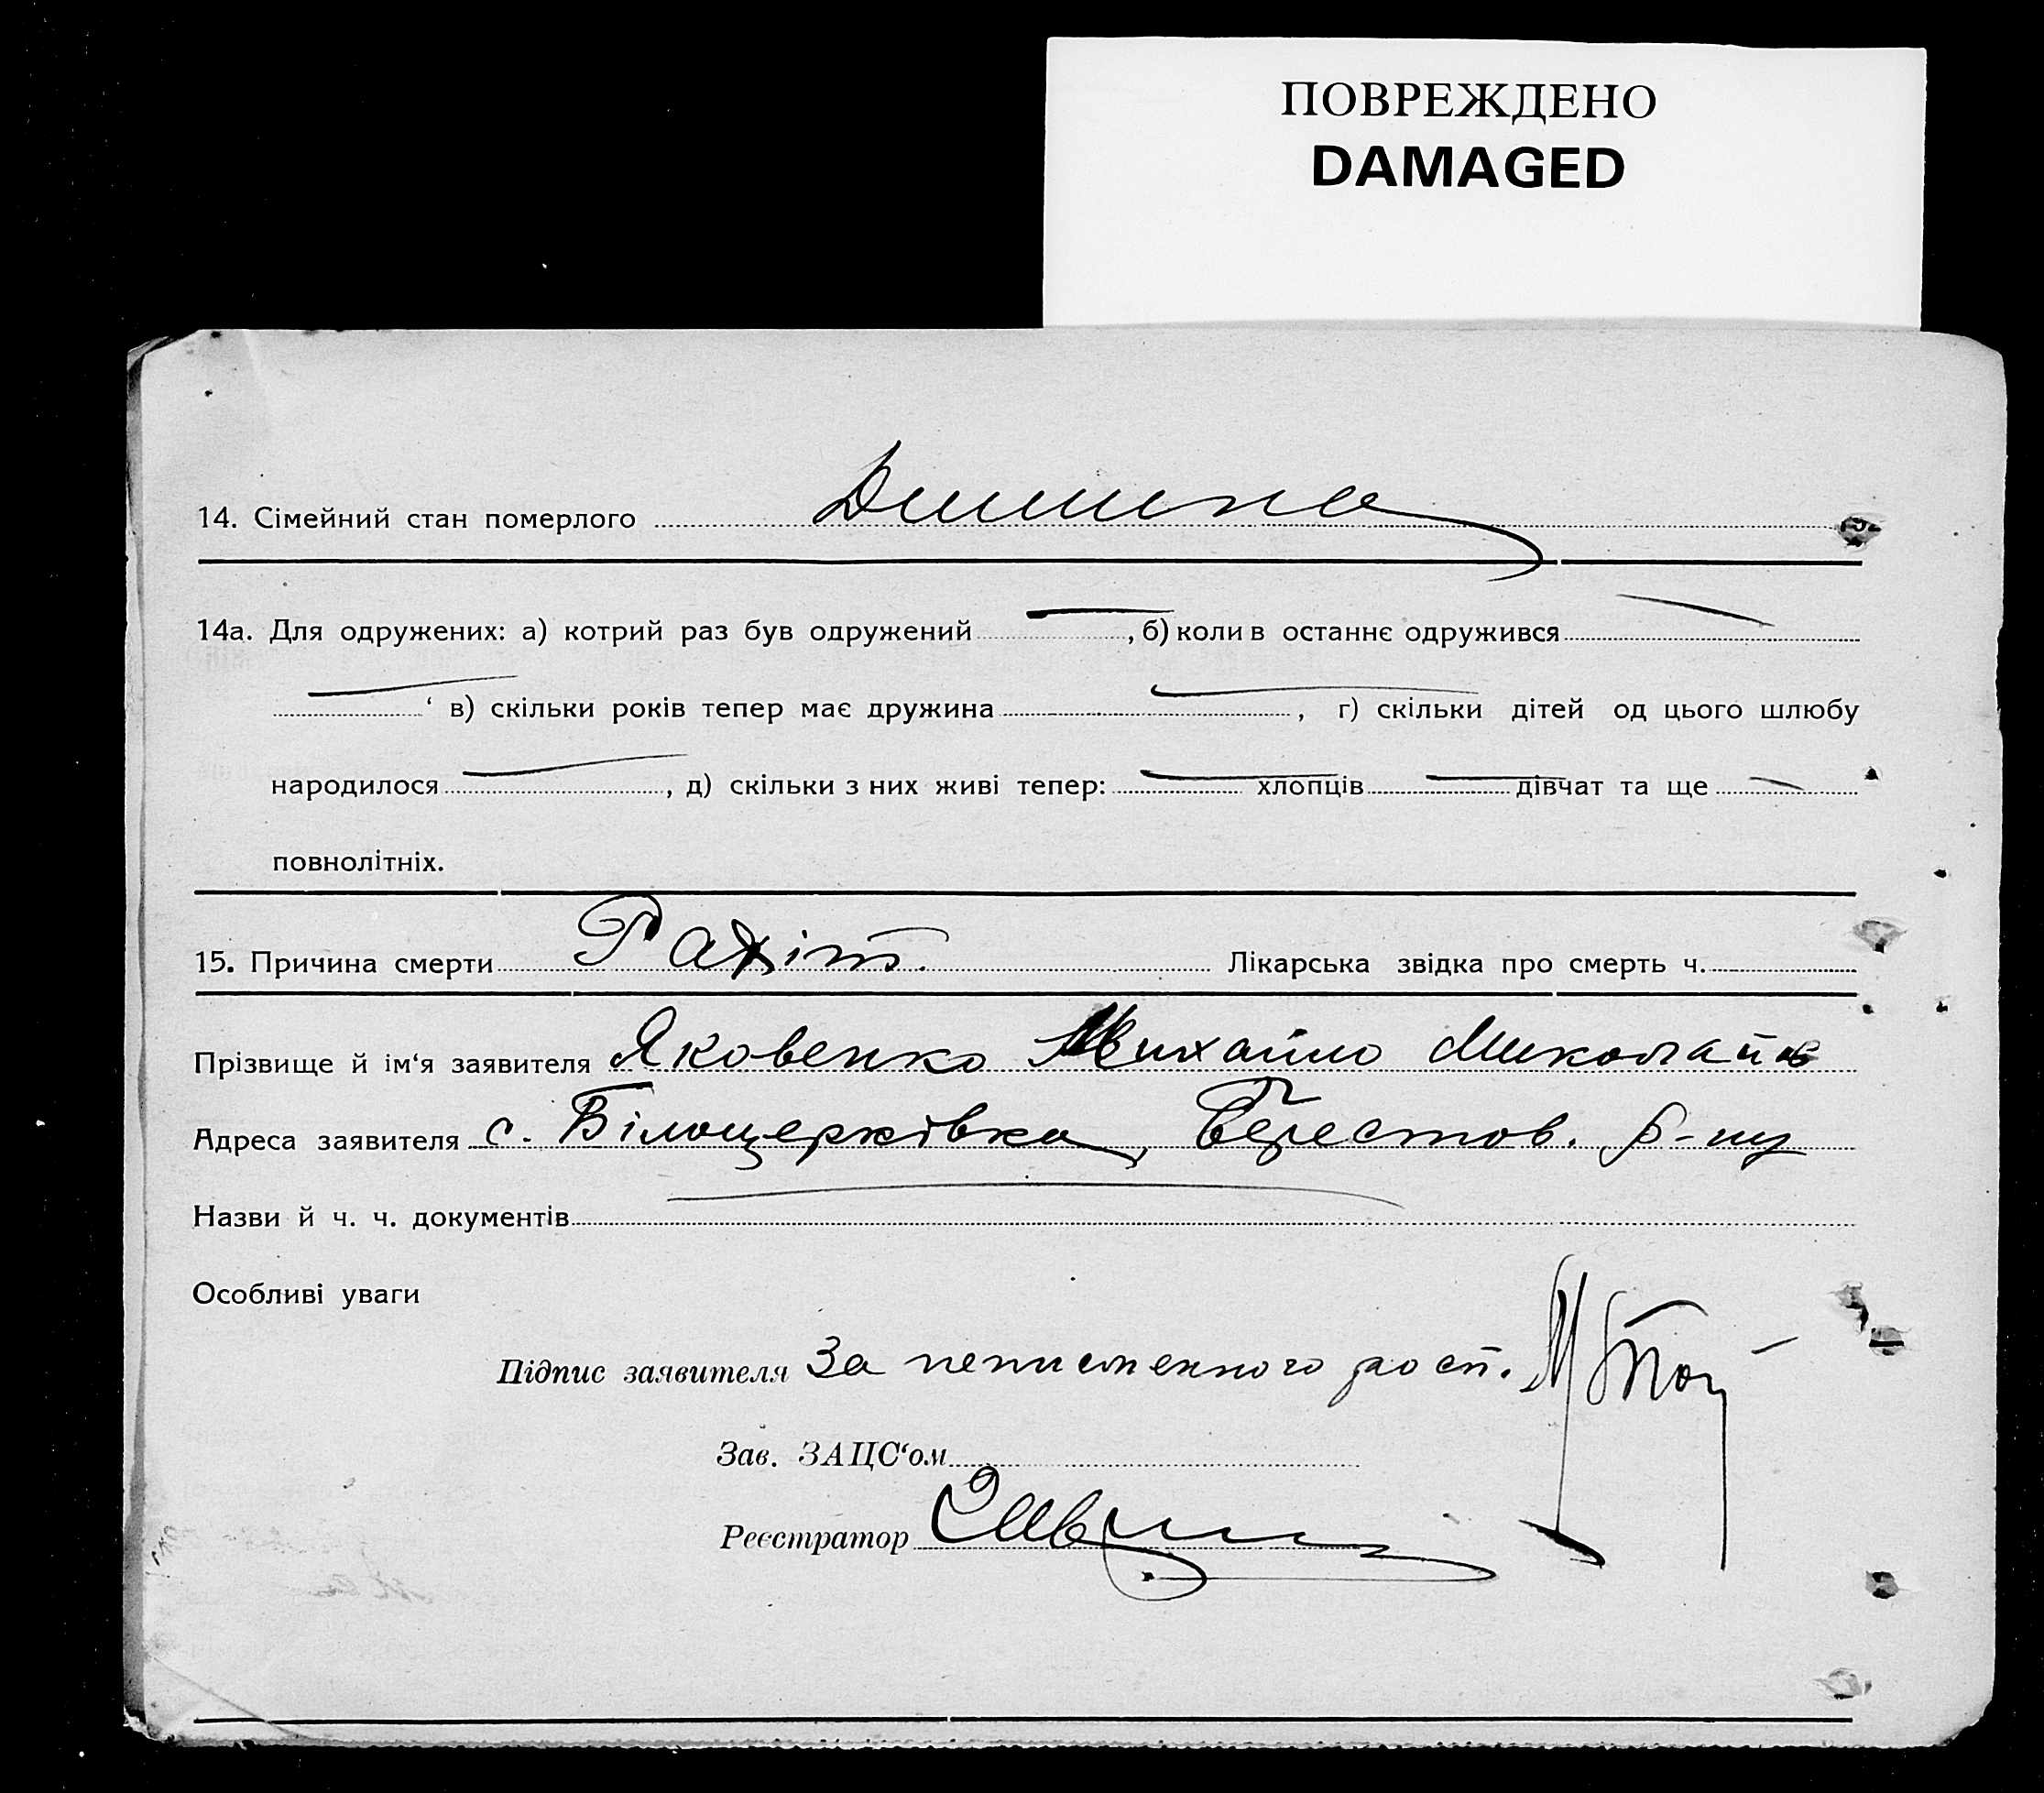 ПОВРЕЖДЕНО
DAMAGED
14. Сімейний стан померлого Дитина
14а. Для одружених: а) котрий раз був одружений , б) коли в останнє одружився
‘ в) скільки років тепер має дружина , г) скільки дітей од цього шлюбу
народилося , д) скільки з них живі тепер: хлопців дівчат та ще
повнолітніх.
15. Причина смерти Рахіт. Лікарська звідка про смерть ч.
Прізвище й ім‘я заявителя Яковенко Михайло Миколайов
Адреса заявителя с. Білоцерківка, Берестов. р-ну
Назви й ч. ч. документів
Особливі уваги
Підпис заявителя За неписменного розп.
Зав. ЗАЦС‘ом
Реєстратор